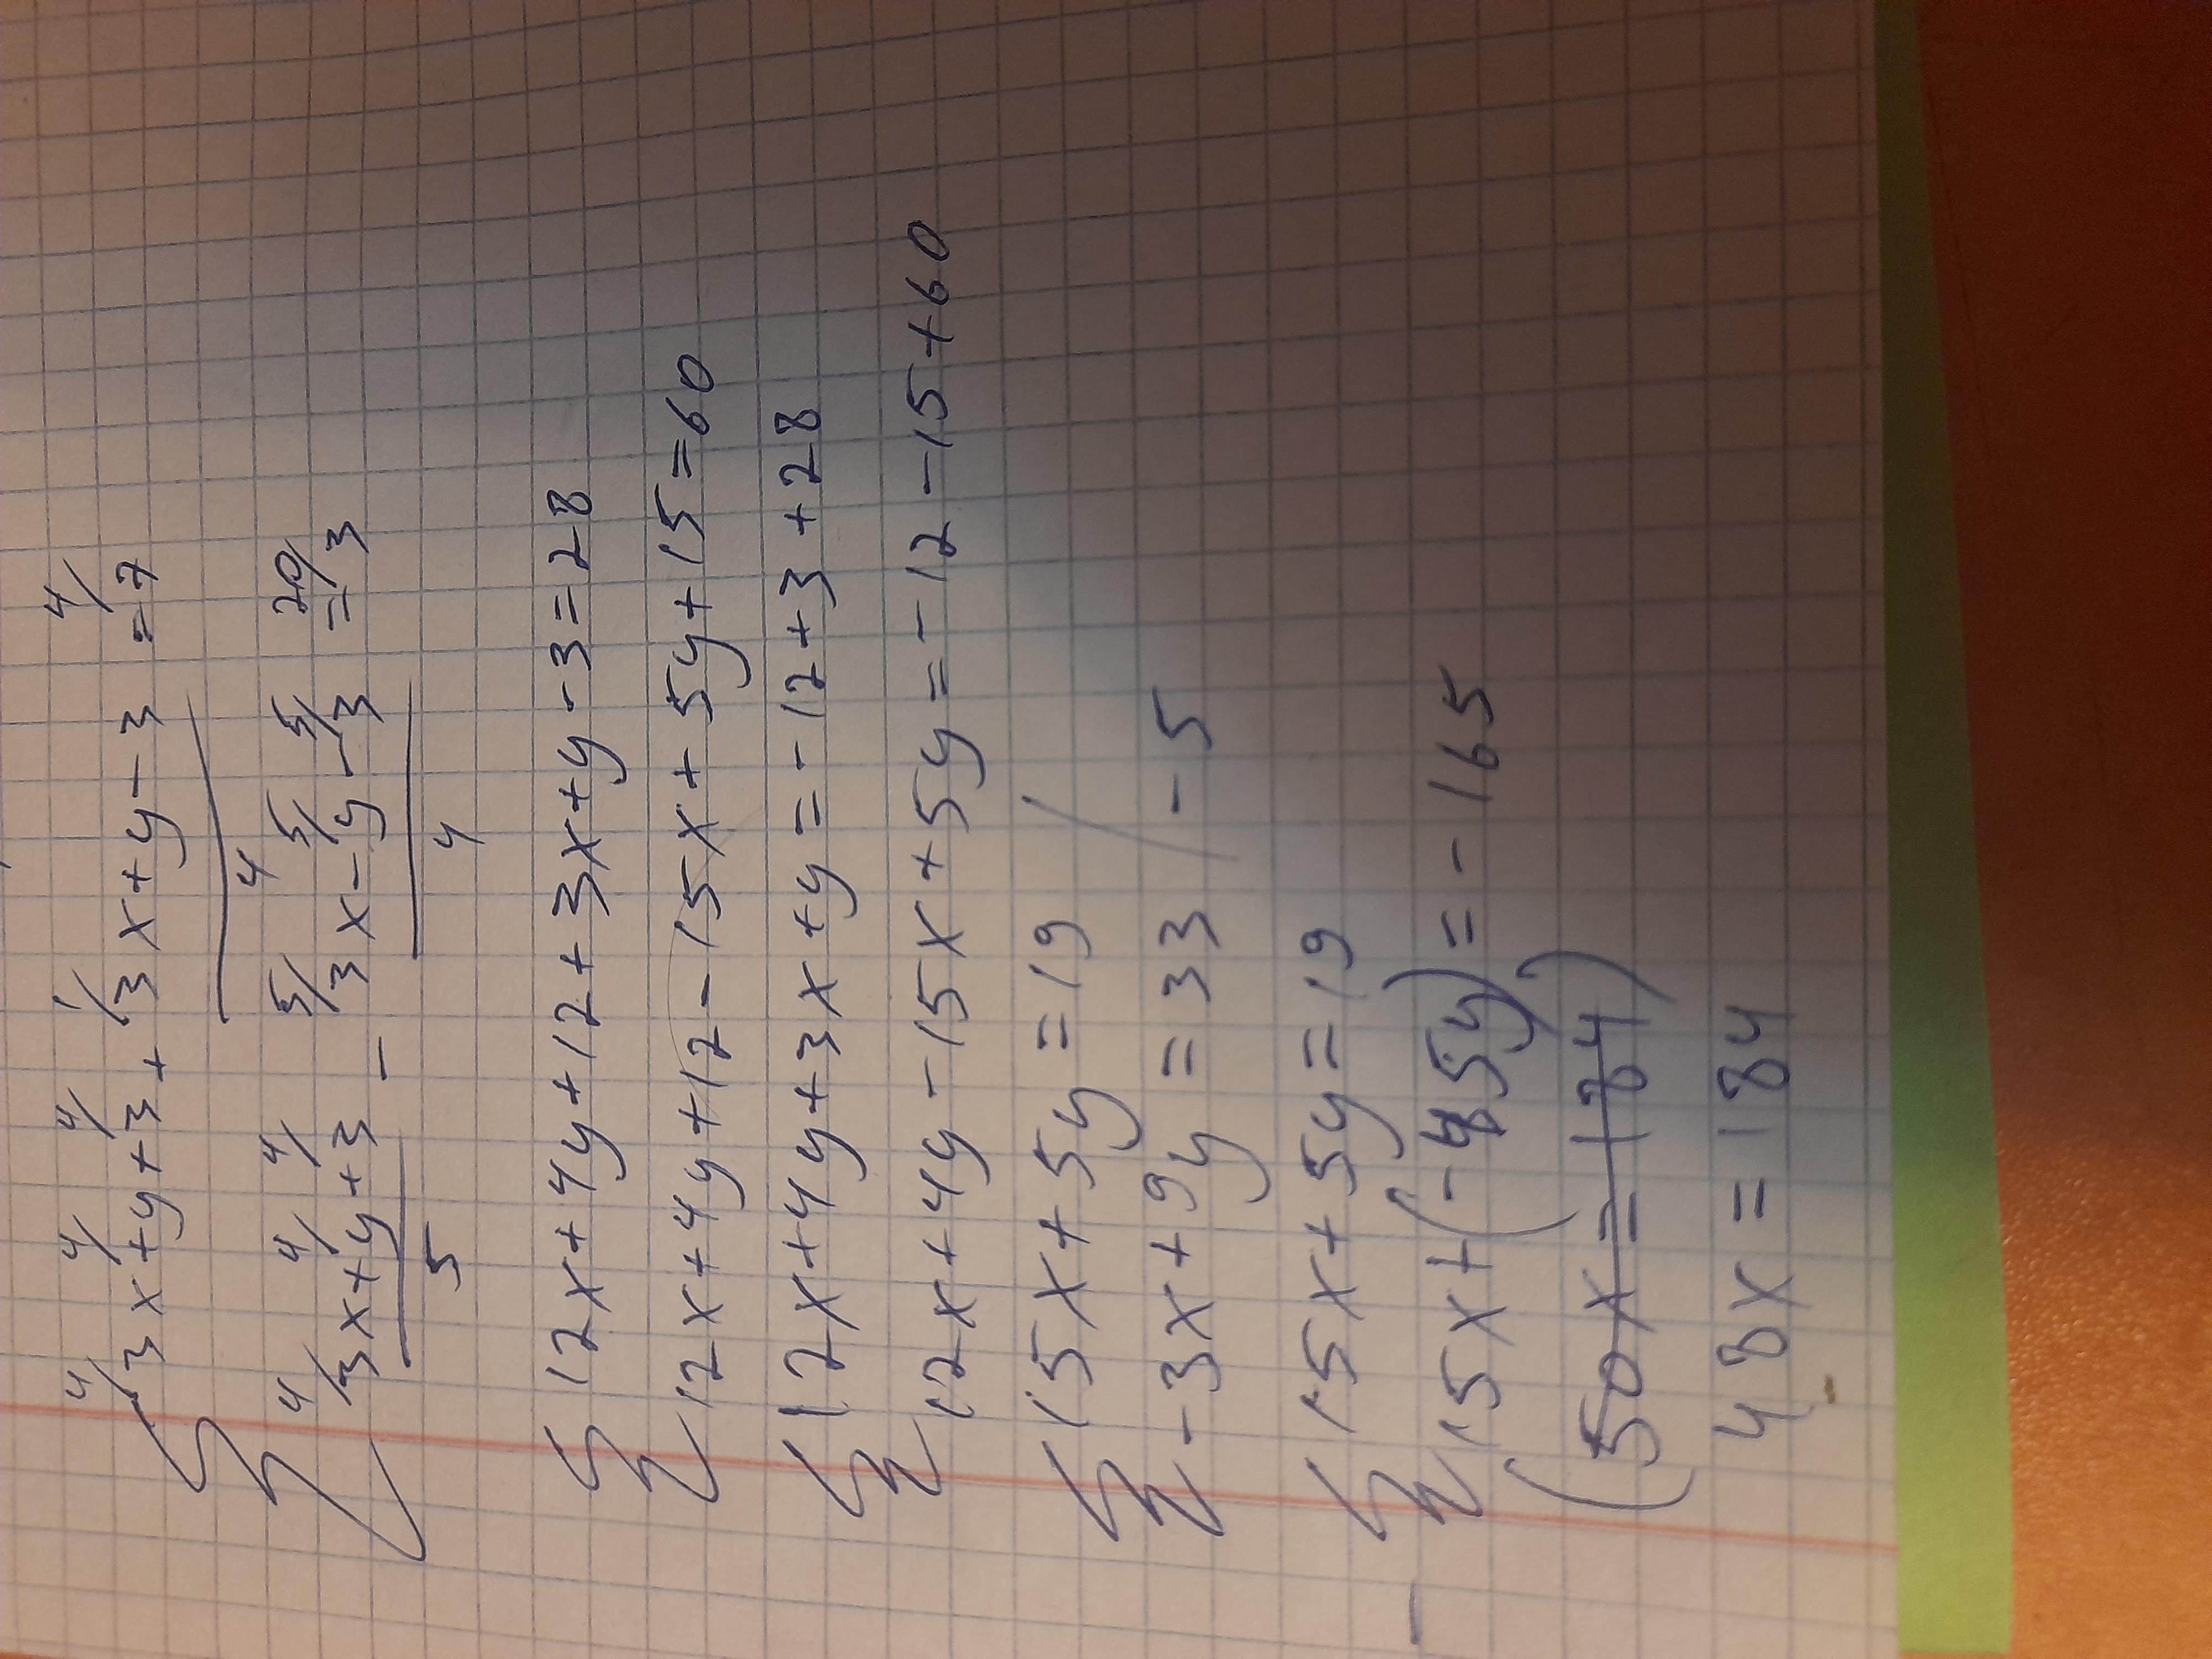 4/ 4/ 4/ 1/ 4/
3x+y+3+3x+y-3=7
4
4/ 4/ 4/ 5/ 5/ 5/ 20/
3x+y+3 - 3x-y-3 =3
5 4
12x+4y+12+3x+y-3=28
12x+4y+12-15x+5y+15=60
12x+4y+3x+y=-12+3+28
12x+4y-15x+5y=-12-15+60
15x+5y=19
-3x+9y=33 /-5
15x+5y=19
15x+(-45y)=-165
(50x=184)
48x=184